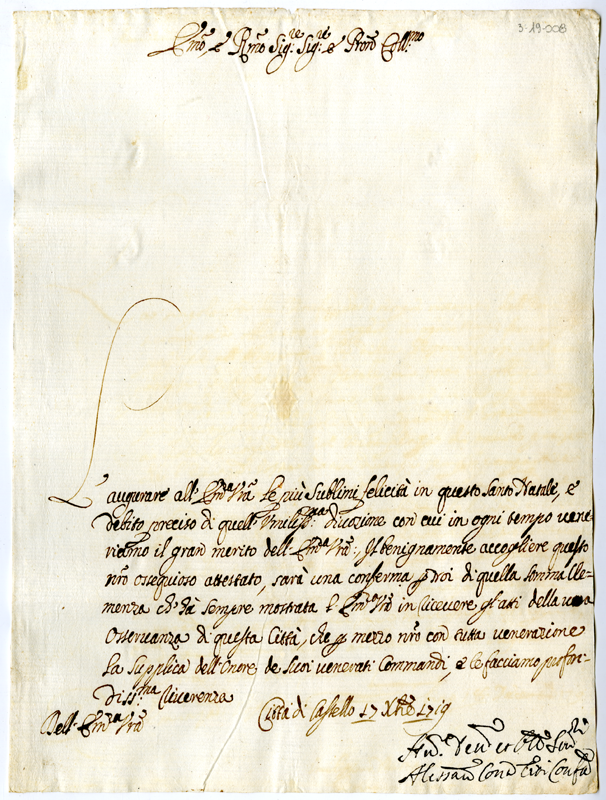 3-19-008
Emo, e Rmo Sigre Sigre e Prone Collmo
L'augurare all'Emza Vra le più sublimi felicità in questo Santo Natale, è
debito preciso di quell'Umilissma divozione con cui in ogni tempo vene-
riamo il gran merito dell'Emza Vra; Il benignamente accogliere questo
nro ossequioso attestato, sarà una conferma p noi di quella somma Cle-
menza ch'hà sempre mostrata l'Emza Vra in ricevere gl'atti della vera
Osservanza di questa Città, che p mezzo nro con tutta venerazione
la supplica dell'Onore de suoi venerati Commandi, e le facciamo profon-
dissma riverenza
Dell'Emza Vra Città di Castello 17 Xbre 1719